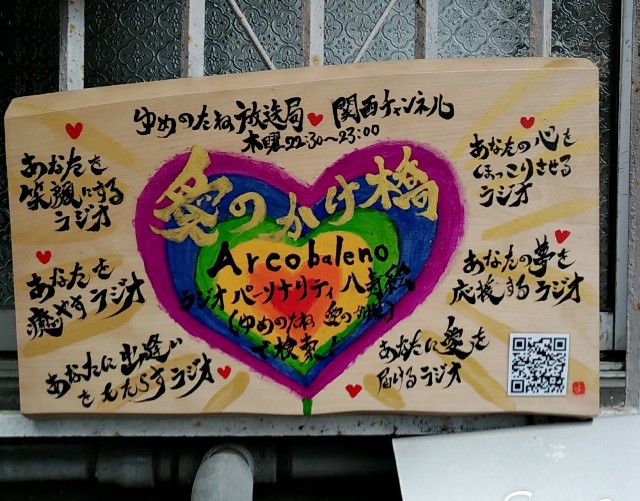 ゆめのたね放送局 関西チャンネル
木曜22:30〜23:00
あなたを
笑顔にする
ラジオ
あなたの心を
ほっこりさせる
ラジオ
愛のかけ橋
Arcobaleno
ラジオパーソナリティ
(ゆめのたね 愛のかけ橋)
で検索!
あなたを
癒やすラジオ
あなたの夢を
応援するラジオ
あなたに出逢い
をもたらすラジオ
あなたに愛を
届けるラジオ